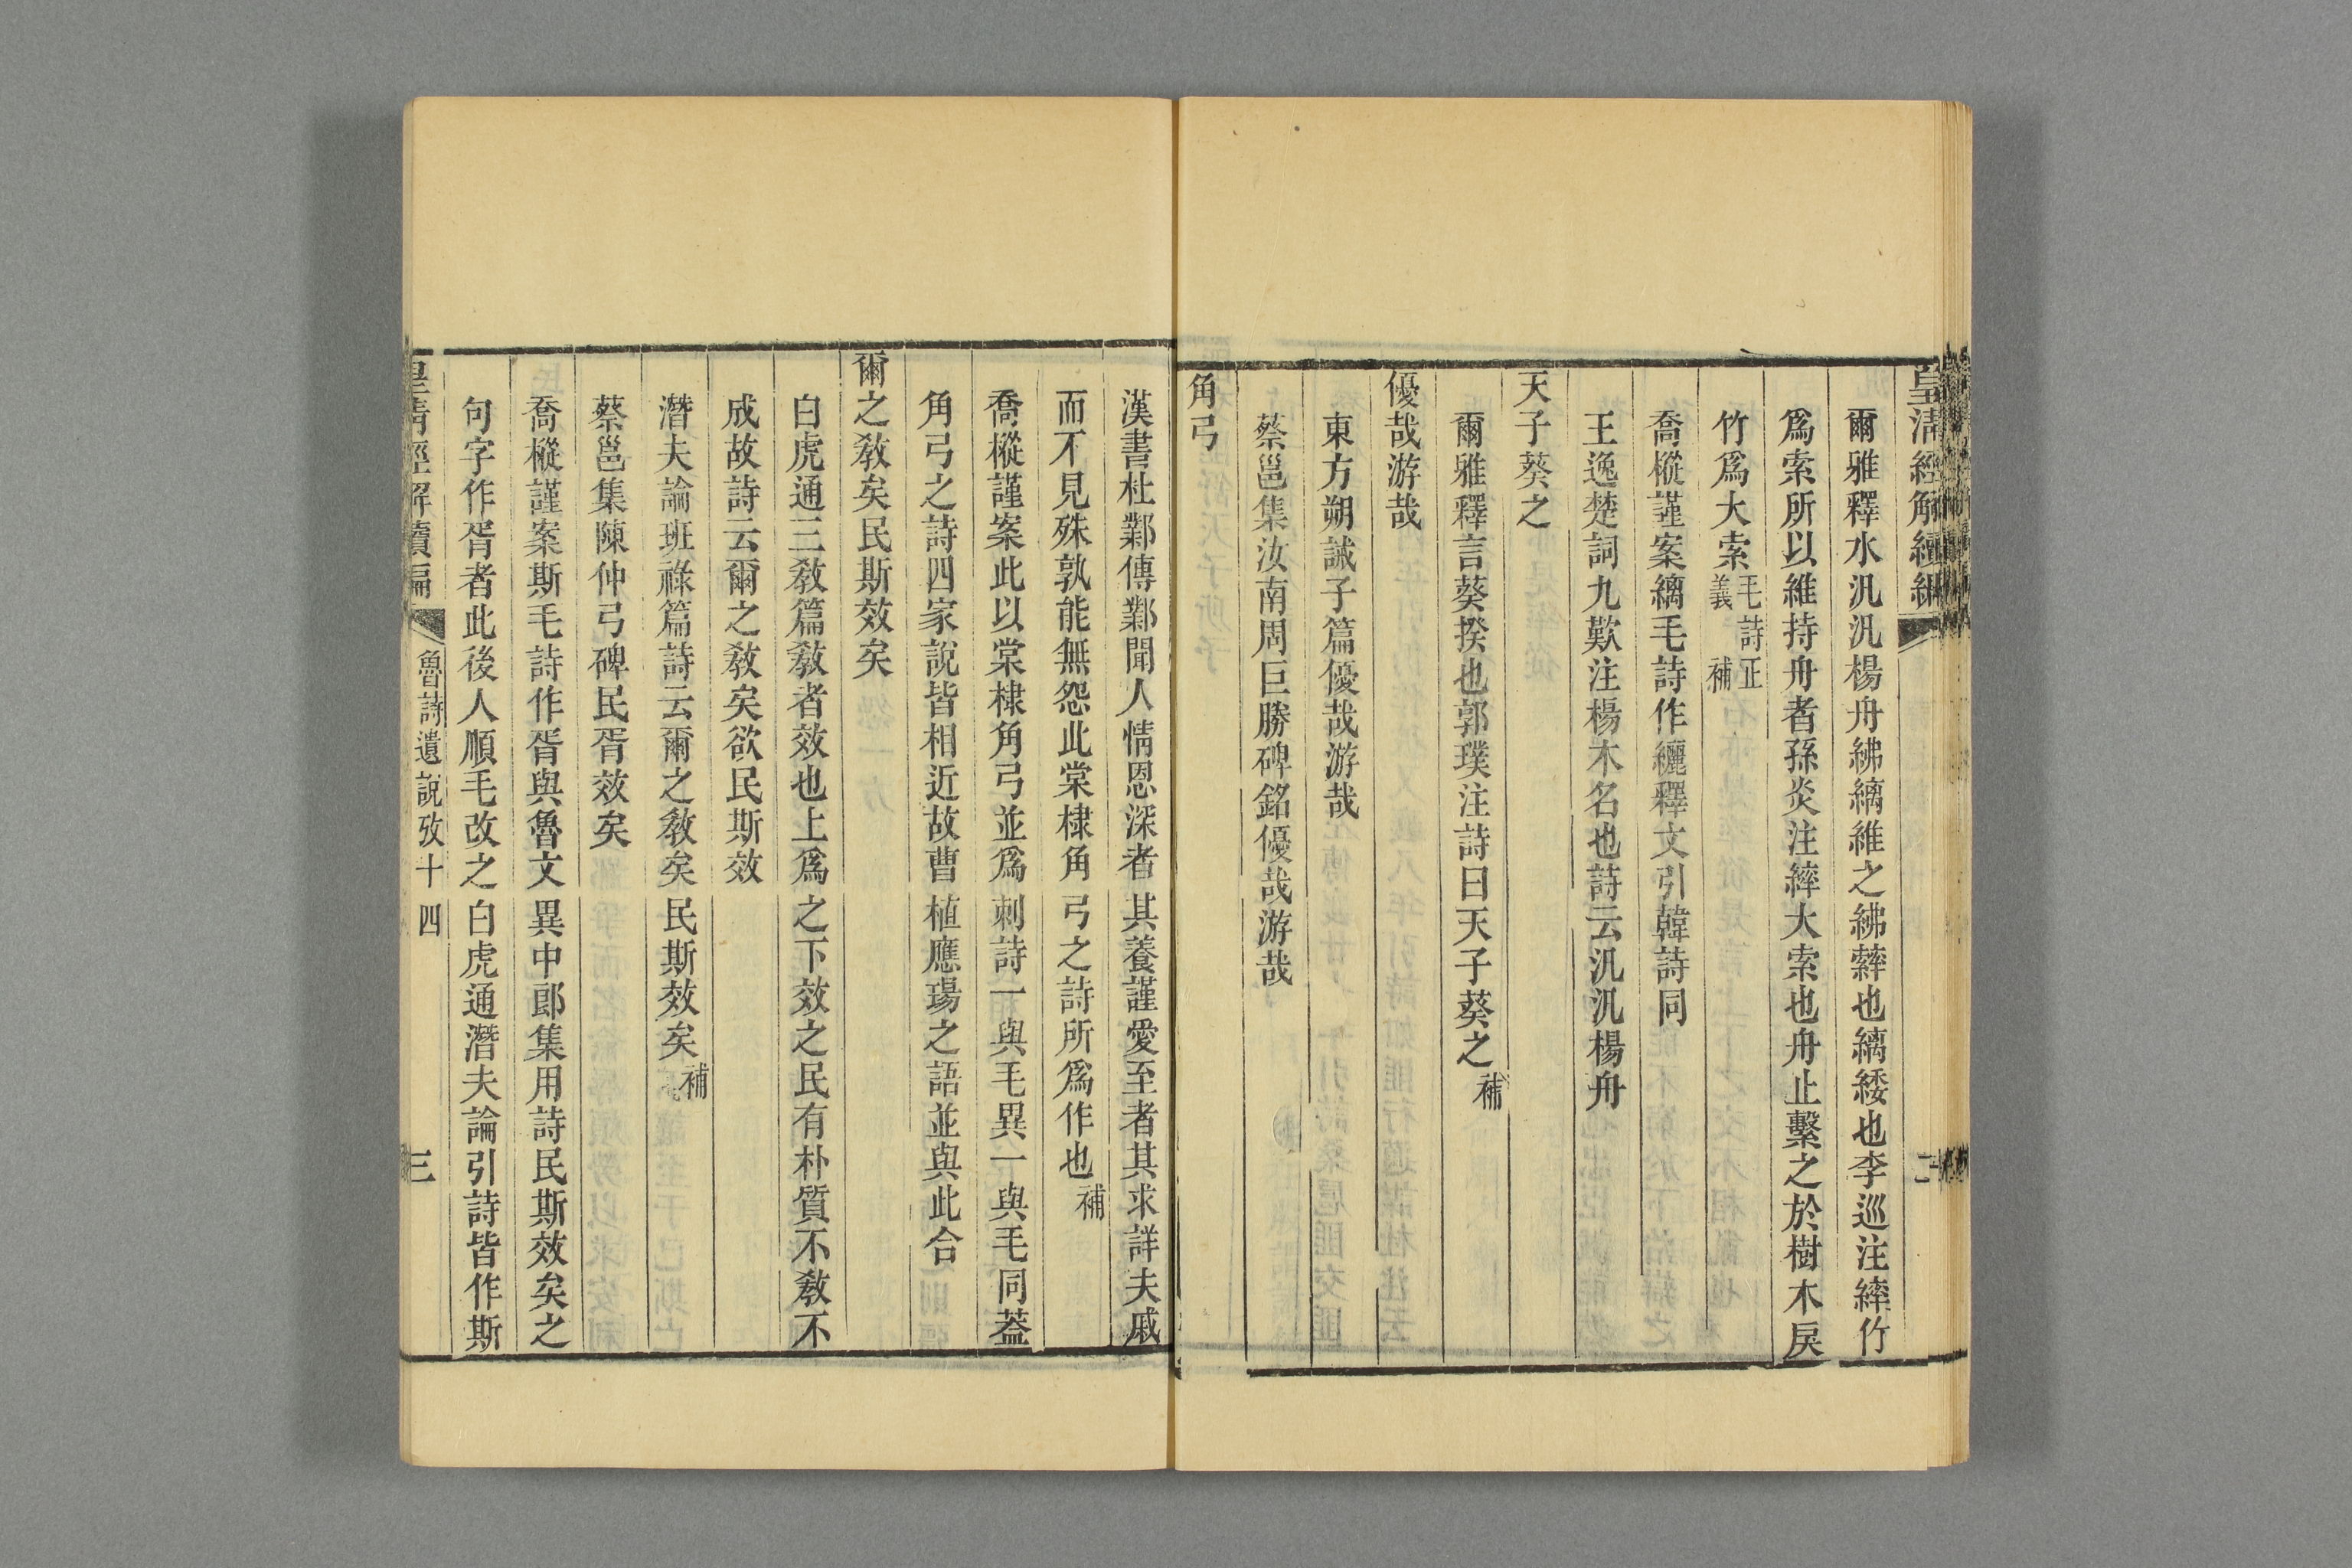 皇清經解續編
二
爾雅釋水汎汎楊舟紼縭維之紼䋐也縭緌也李巡注繂竹
爲索所以維持舟者孫炎注繂大索也舟止繫之於樹木戾
竹爲大索毛詩正義補
喬樅謹案縭毛詩作纚釋文引韓詩同
王逸楚詞九歎注楊木名也詩云汎汎楊舟
天子葵之
爾雅釋言葵揆也郭璞注詩曰天子葵之補
優哉游哉
東方朔誡子篇優哉游哉
蔡邕集汝南周巨勝碑銘優哉游哉
角弓
漢書杜鄴傳鄴聞人情恩深者其養謹愛至者其求詳夫戚
而不見殊孰能無怨此棠棣角弓之詩所爲作也補
喬樅謹案此以棠棣角弓並爲刺詩一與毛異一與毛同葢
角弓之詩四家說皆相近故曹植應瑒之語並與此合
爾之敎矣民斯效矣
白虎通三敎篇敎者效也上爲之下效之民有朴質不敎不
成故詩云爾之敎矣欲民斯效
潛夫論班祿篇詩云爾之敎矣民斯效矣補
蔡邕集陳仲弓碑民胥效矣
喬樅謹案斯毛詩作胥與魯文異中郎集用詩民斯效矣之
句字作胥者此後人順毛改之白虎通潛夫論引詩皆作斯
皇清經解續編
魯詩遺說攷十四
三